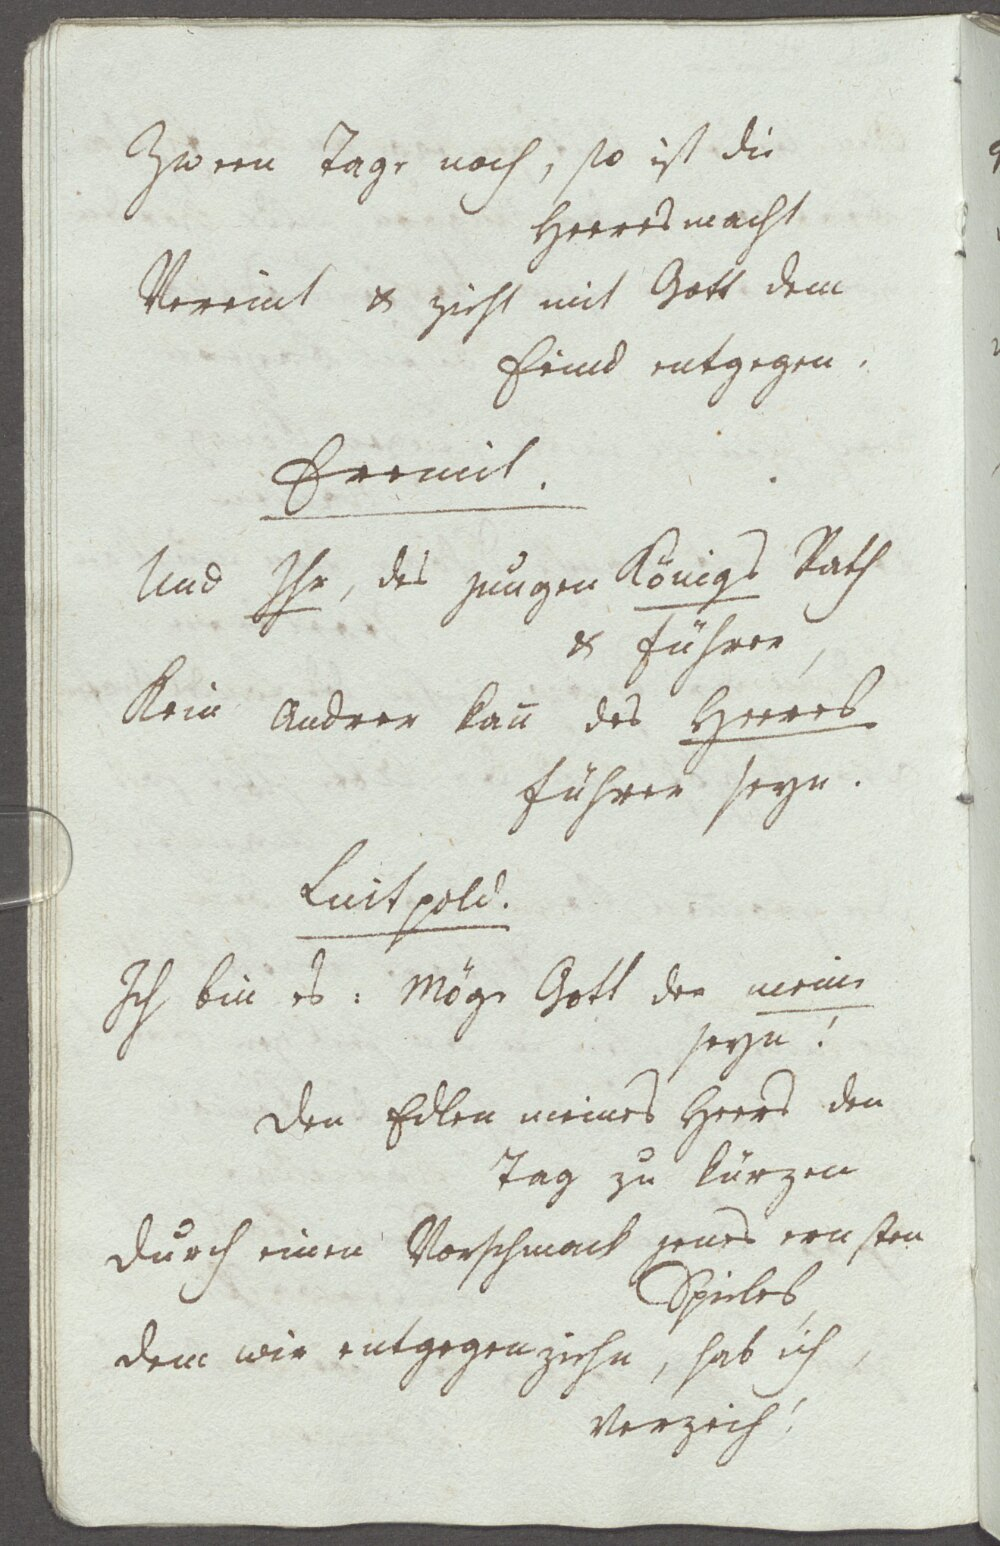 Zween Tage noch, so ist die
Heeresmacht
Vereint & zieht mit Gott dem
Feind entgegen.
Eremit.
Und Ihr, des jungen Königs Rath
& Führer,
Kein Andrer kan̄ des Heeres
Führer seyn.
Luitpold.
Ich bin es: Möge Gott der meine
seyn!
Den Edlen meines Heers den
Tag zu kürzen
Durch einen Vorschmack jenes ernsten
Spieles,
Dem wir entgegenziehn, hab ich,
Verzeih!